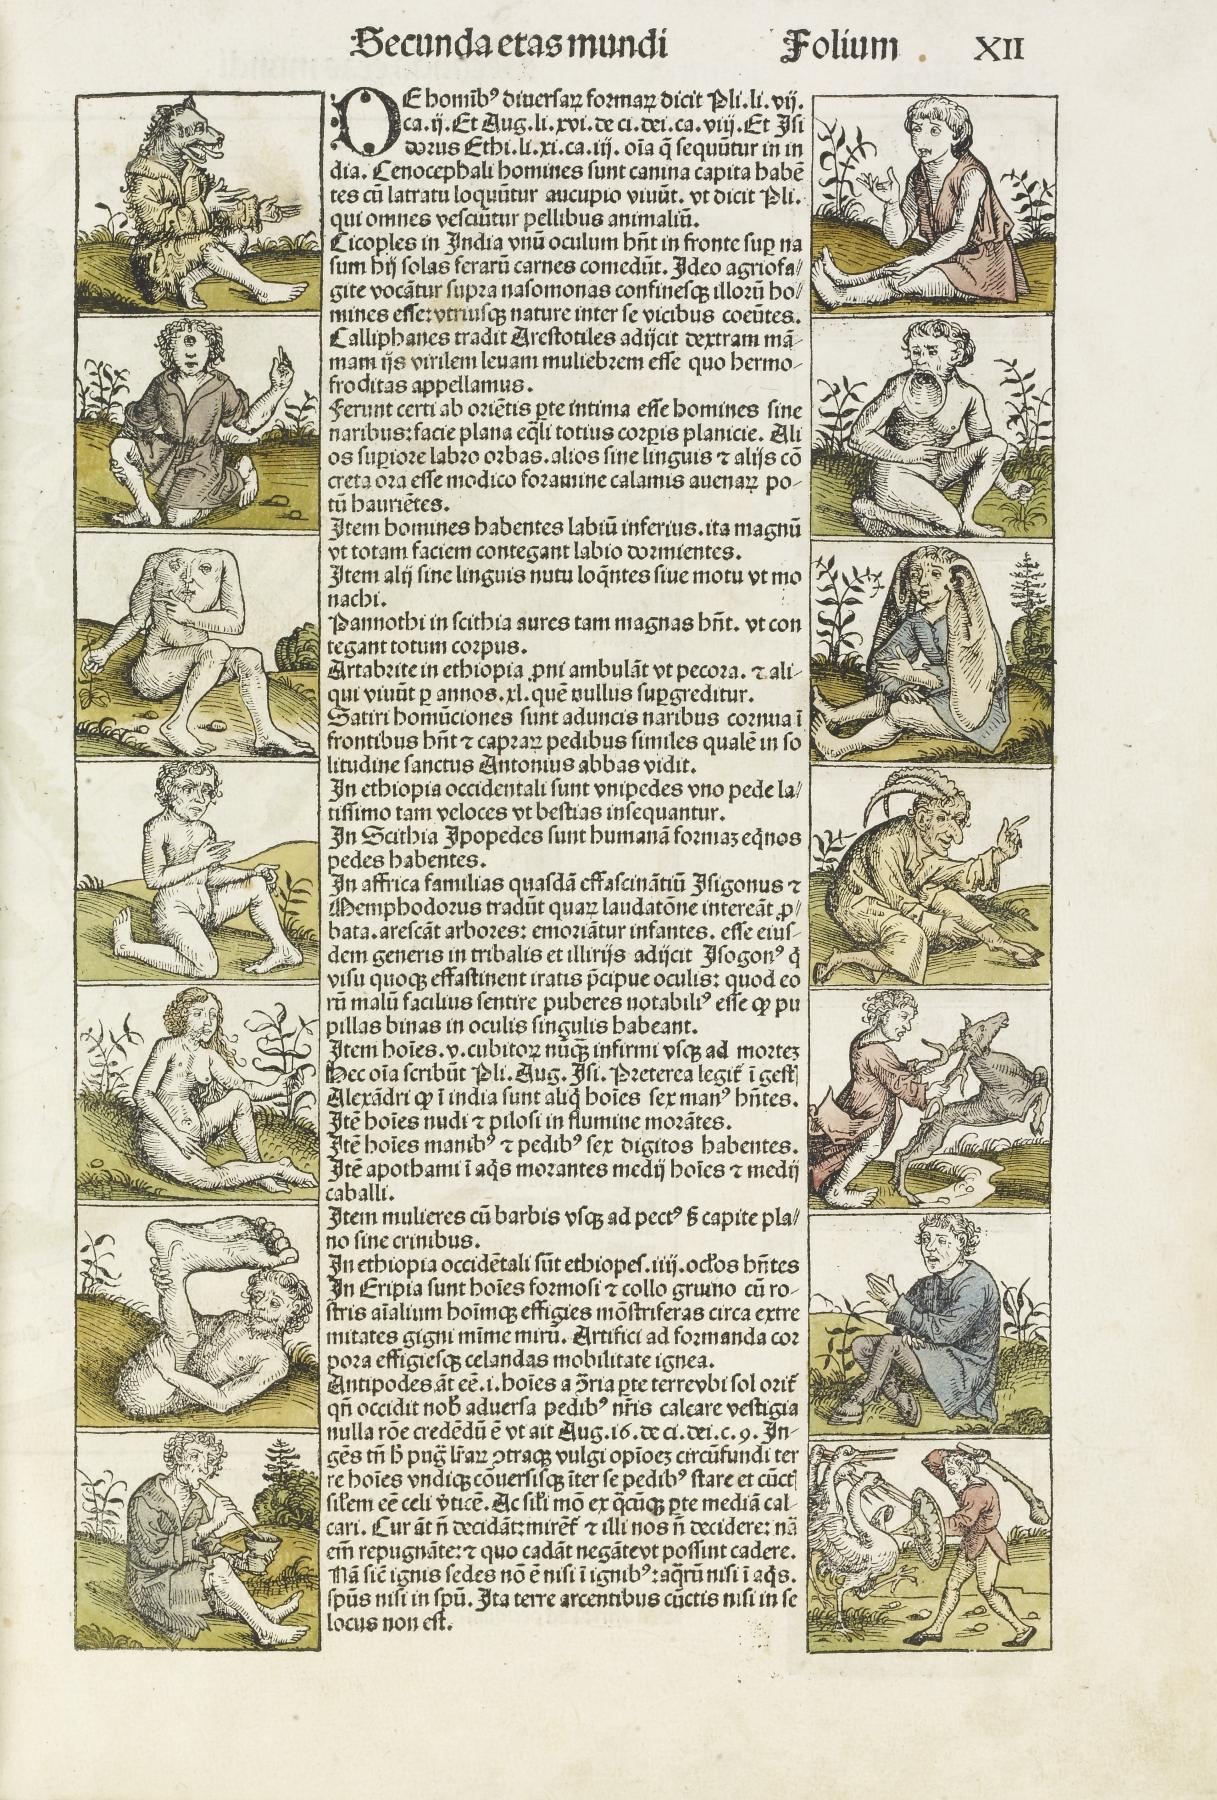 Secunda etas mundi Folium XII
DE homĩbꝰ diuersaꝝ formaꝝ dicit Pli.li.vij.
ca.ij. Et Aug.li.xvi.de ci.dei.ca.viij. Et Isi
dorus Ethi.li.xi.ca.iij. oĩa q̃ sequũtur in in
dia. Cenocephali homines sunt canina capita habẽ
tes cũ latratu loquũtur aucupio viuũt. vt dicit Pli.
qui omnes vescũtur pellibus animaliũ.
Cicoples in India vnũ oculum hñt in fronte suꝑ na
sum hij solas feraꝝũ carnes comedũt. Ideo agriofa/
gite vocãtur supra nasomonas confinesqꝫ illorũ ho/
mines esse: vtriusqꝫ nature inter se vicibus coeũtes.
Calliphanes tradit Arestotiles adijcit dextram mã-
mam ijs virilem leuam muliebrem esse quo hermo-
froditas appellamus.
Ferunt certi ab oriẽtis ꝑte intima esse homines sine
naribus: facie plana eq̃li totius corꝑis planicie. Ali
os suꝑiore labro orbas. alios sine linguis ⁊ alijs cõ
creta ora esse modico foramine calamis auenaꝝ po-
tũ hauriẽtes.
Item homines habentes labiũ inferius. ita magnũ
vt totam faciem contegant labio dormientes.
Item alij sine linguis nutu loq̃ntes siue motu vt mo
nachi.
Pannothi in scithia aures tam magnas hñt. vt con
tegant totum corpus.
Artabrite in ethiopia ꝓni ambulãt vt pecora. ⁊ ali-
qui viuũt ꝑ annos.xl. quẽ nullus suꝑgreditur.
Satiri homũciones sunt aduncis naribus cornua ĩ
frontibus hñt ⁊ capraꝝ pedibus similes qualẽ in so
litudine sanctus Antonius abbas vidit.
In ethiopia occidentali sunt vnipedes vno pede la/
tissimo tam veloces vt bestias insequantur.
In Scithia Ipopedes sunt humanã formaꝫ eq̃nos
pedes habentes.
In affrica familias quasdã effascinãtiũ Isigonus ⁊
Memphodorus tradũt quaꝝ laudatõne intereãt ꝓ/
bata. arescãt arbores: emoriãtur infantes. esse eius-
dem generis in tribalis et illirijs adijcit Isogonꝰ q̃
visu quoqꝫ effastinent iratis p̃cipue oculis: quod eo
rũ malũ facilius sentire puberes notabiliꝰ esse ꝙ pu
pillas binas in oculis singulis habeant.
Item hoĩes.v.cubitoꝝ nũq̃ꝫ infirmi vsqꝫ ad morteꝫ
Hec oĩa scribũt Pli. Aug. Isi. Preterea legit̃ ĩ gest̃
Alexãdri ꝙ ĩ india sunt aliq̃ hoĩes sex manꝰ hñtes.
Itẽ hoĩes nudi ⁊ pilosi in flumine morãtes.
Itẽ hoĩes manibꝰ ⁊ pedibꝰ sex digitos habentes.
Itẽ apothami ĩ aq̃s morantes medij hoĩes ⁊ medij
caballi.
Item mulieres cũ barbis vsqꝫ ad pectꝰ s̃ capite pla/
no sine crinibus.
In ethiopia occidẽtali sũt ethiopes.iiij.oclõs hñtes
In Eripia sunt hoĩes formosi ⁊ collo gruino cũ ro-
stris aĩalium hoĩmqꝫ effigies mõstriferas circa extre
mitates gigni mĩme mirũ. Artifici ad formanda cor
pora effigiesqꝫ celandas mobilitate ignea.
Antipodes ãt eẽ.i.hoĩes a ꝯ̃ria ꝑte terre vbi sol orit̃
qñ occidit nob̃ aduersa pedibꝰ nr̃is calcare vestigia
nulla rõe credẽdũ ẽ vt ait Aug.16.de ci.dei.c.9. In-
gẽs tñ h̃ pug̃ lr̃aꝝ ꝯtraqꝫ vulgi opĩoeꝫ circũfundi ter
re hoĩes vndiqꝫ cõuersisqꝫ ĩter se pedibꝰ stare et cũct̃
sil̃em eẽ celi ṽticẽ. Ac sil̃i mõ ex q̃cũqꝫ ꝑte mediã cal-
cari. Cur ãt ñ decidãt: miret̃ ⁊ illi nos ñ decidere: nã
em̃ repugnãte: ⁊ quo cadãt negãte vt possint cadere.
Nã sic̃ ignis sedes nõ ẽ nisi ĩ ignibꝰ: aq̃rũ nisi ĩ aq̃s.
sp̃us nisi in sp̃u. Ita terre arcentibus cũctis nisi in se
locus non est.